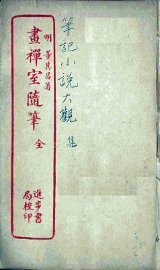 筆記小說大觀
明 董其昌著
畫禪室隨筆 全
進步書
局校印